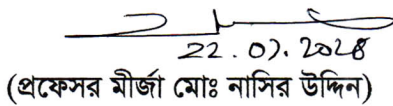 22.07.2028
(প্রফেসর মীর্জা মোঃ নাসির উদ্দিন)